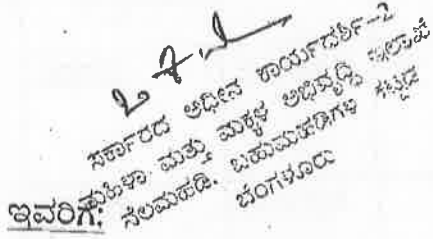 ಸರ್ಕಾರದ ಅಧೀನ ಕಾರ್ಯದರ್ಶಿ-2
ಮಹಿಳಾ ಮತ್ತು ಮಕ್ಕಳ ಅಭಿವೃದ್ಧಿ ಇಲಾಖೆ
ನೆಲಮಹಡಿ. ಬಹುಮಹಡಿಗಳ ಕಟ್ಟಡ
ಬೆಂಗಳೂರು
ಇವರಿಗೆ: